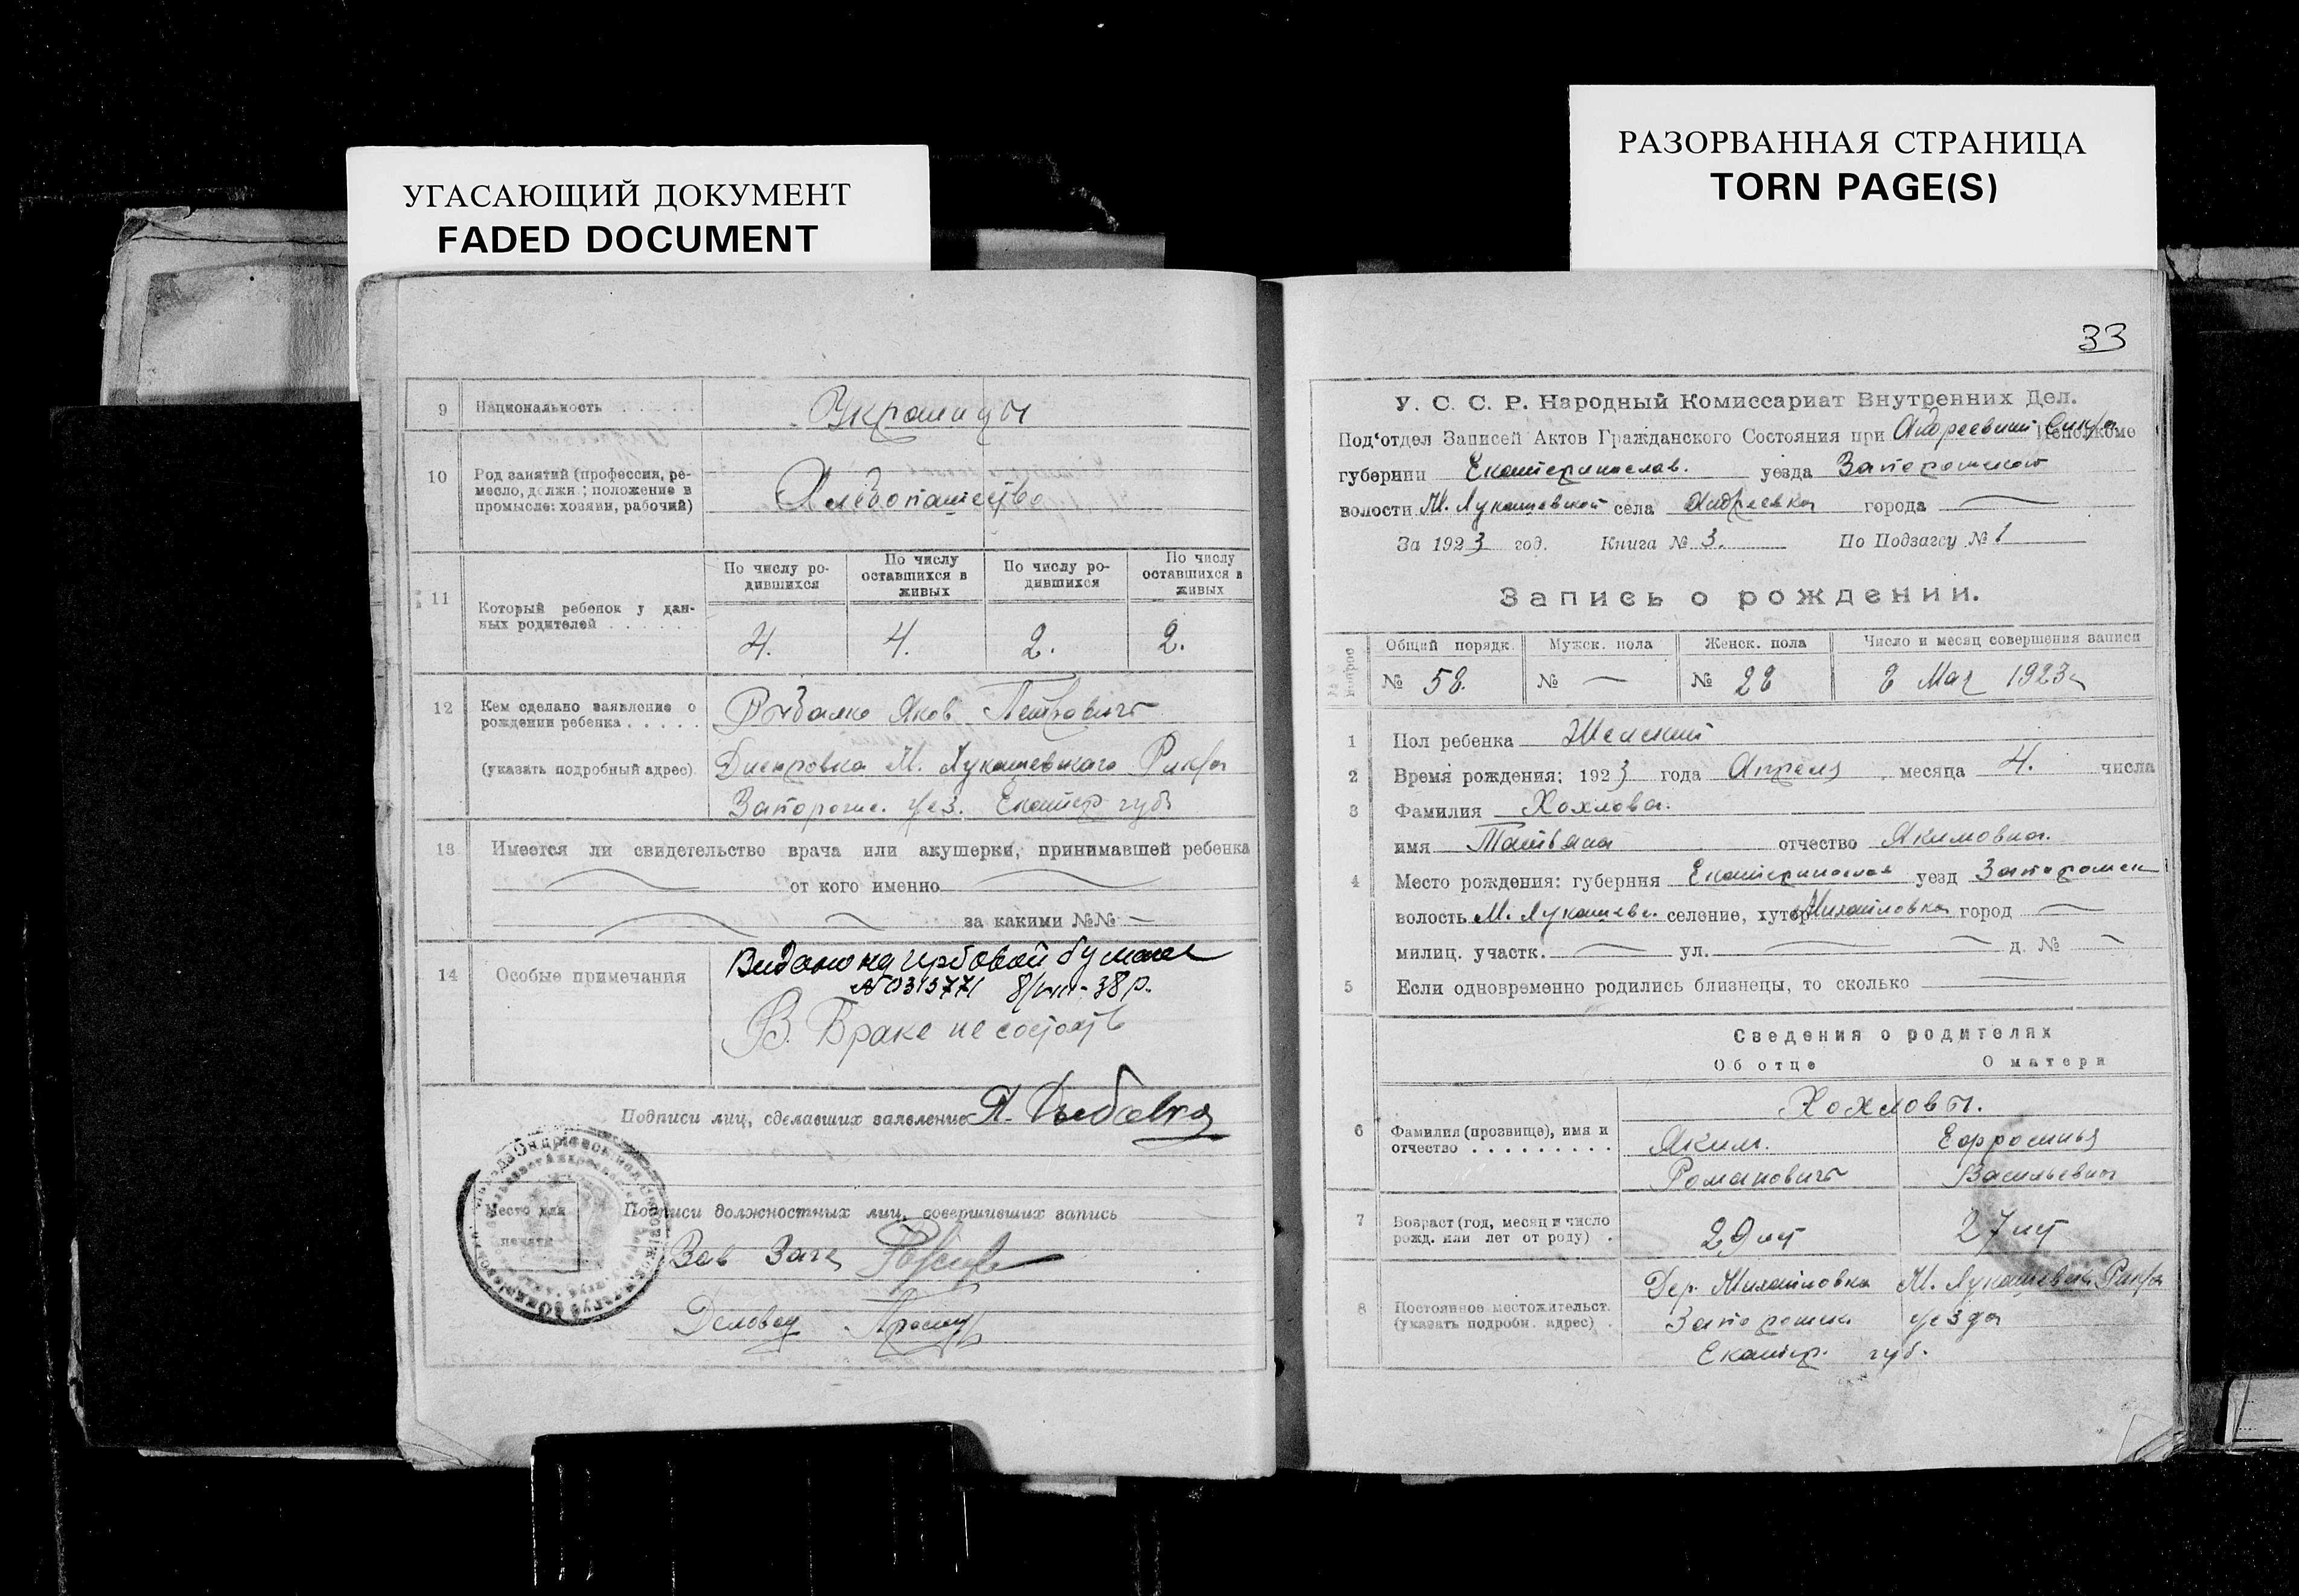 УГАСАЮЩИЙ ДОКУМЕНТ
FADED DOCUMENT
9 Национальность . . . . . Вкраинцы
10 Род занятий (профессия, ре-
месло, должн.; положение в
промысле: хозяин, рабочий)
Хлебопашество
11 Который ребенок у дан-
ных родителей . . . . . .
По числу ро-
дившихся
По числу
оставшихся в
живых
По числу ро-
дившихся
По числу
оставшихся в
живых
4. 4. 2. 2.
12 Кем сделано заявление о
рождении ребенка . . . . .
(указать подробный адрес)
Рыбалко Яков Петрович
Днепровка М. Лукашевского Рика
Запорож. уез. Екатер губ
13 Имеется ли свидетельство врача или акушерки, принимавшей ребенка
от кого именно
за какими №№ —
14 Особые примечания
Видано на гербовой бумаге
№ 0315771 8/VIII-38 р.
В. Браке не состоят
Подписи лиц, сделавших заявление Я. Рыбалко
Место для
печати
Подписи должностных лиц, совершивших запись
Зав Загс
Деловод
РАЗОРВАННАЯ СТРАНИЦА
TORN PAGE(S)
33
У. С. С. Р. Народный Комиссариат Внутренних Дел.
Под'отдел Записей Актов Гражданского Состояния при Андреевским Исполкоме
губернии Екатеринослав. уезда Запорожского
волости М. Лукашевской села Андреевка города —
За 1923 год. Книга № 3. По Подзагсу № 1
Запись о рождении.
№№ вопрос
Общий порядк. Мужск. пола Женск. пола Число и месяц совершения записи
№ 58. № — № 28 8 Мая 1923 г
1 Пол ребенка Женский
2 Время рождения: 1923 года Апреля месяца 4. числа
3 Фамилия Хохлова.
имя Татьяна отчество Якимовна.
4 Место рождения: губерния Екатеринослав уезд Запорожск
волость М. Лукашевс. селение, хутор Михайловка город —
милиц. участк. — ул. — д. № —
5 Если одновременно родились близнецы, то сколько —
Сведения о родителях
Об отце О матери
Хохловы.
6 Фамилия (прозвище), имя и
отчество . . . . . . . . .
Яким. Ефросинья
Романович Васильевна
7 Возраст (год, месяц и число
рожд. или лет от роду) .
29 лет 27 лет
8 Постоянное местожительст.
(указать подробн. адрес) .
Дер. Михайловка М. Лукашевск Рика
Запорожск уезда
Екатер. губ.